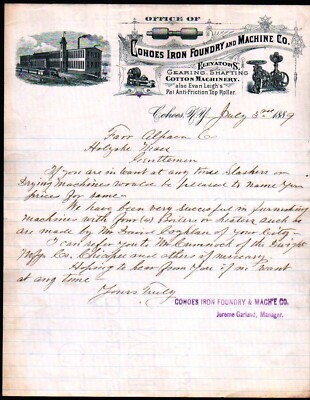 OFFICE OF
COHOES IRON FOUNDRY AND MACHINE CO.
ELEVATORS.
GEARING, SHAFTING
COTTON MACHINERY.
also Evan Leigh's
Pat Anti-Friction Top Roller.
Cohoes N.Y. July 3rd 1889
Farr Alpaca Co
Holyoke Mass
Gentlemen
If you are in want at any time Slashers or
Drying Machines would be pleased to name you
prices for same -
We have been very successful in furnishing
machines with four (4) Boilers or heaters such as
are made by Mr Coghlan of your City -
I can refer you to Mr Cumnock of the Dwight
Mfg Co. Chicopee and others if necessary
Hoping to hear from you if in want
at any time
Yours Truly
COHOES IRON FOUNDRY & MACH'E CO.
Jerome Garland, Manager.